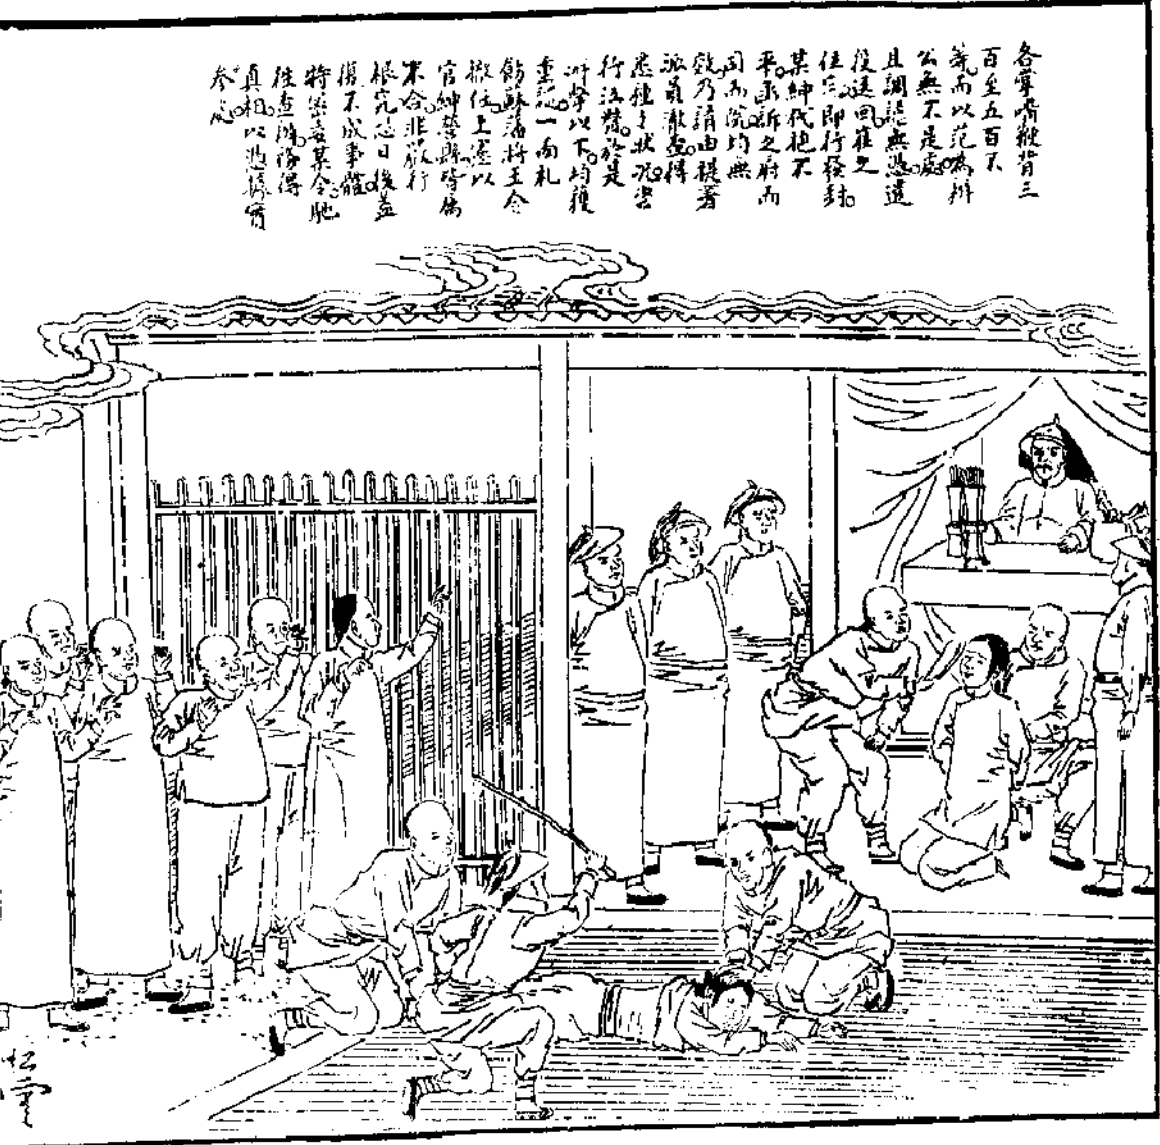 各掌嘴鞭背三
百至五百不
等而以范為辦
公無不是處
且調無憑遣
役送回雇之
住宅即行發封
某紳代抱不
平函訴之府而
司而院均無
效乃請由提署
派員澈查得
悉種種狀況當
行江督於是
游擊以下均獲
重譴一面札
飭蘇藩將王令
撤任上憲以
官紳營縣皆屬
不合非嚴行
根究恐日後益
復不成事體
特密委某令馳
往查辦務得
真相以憑據實
參處